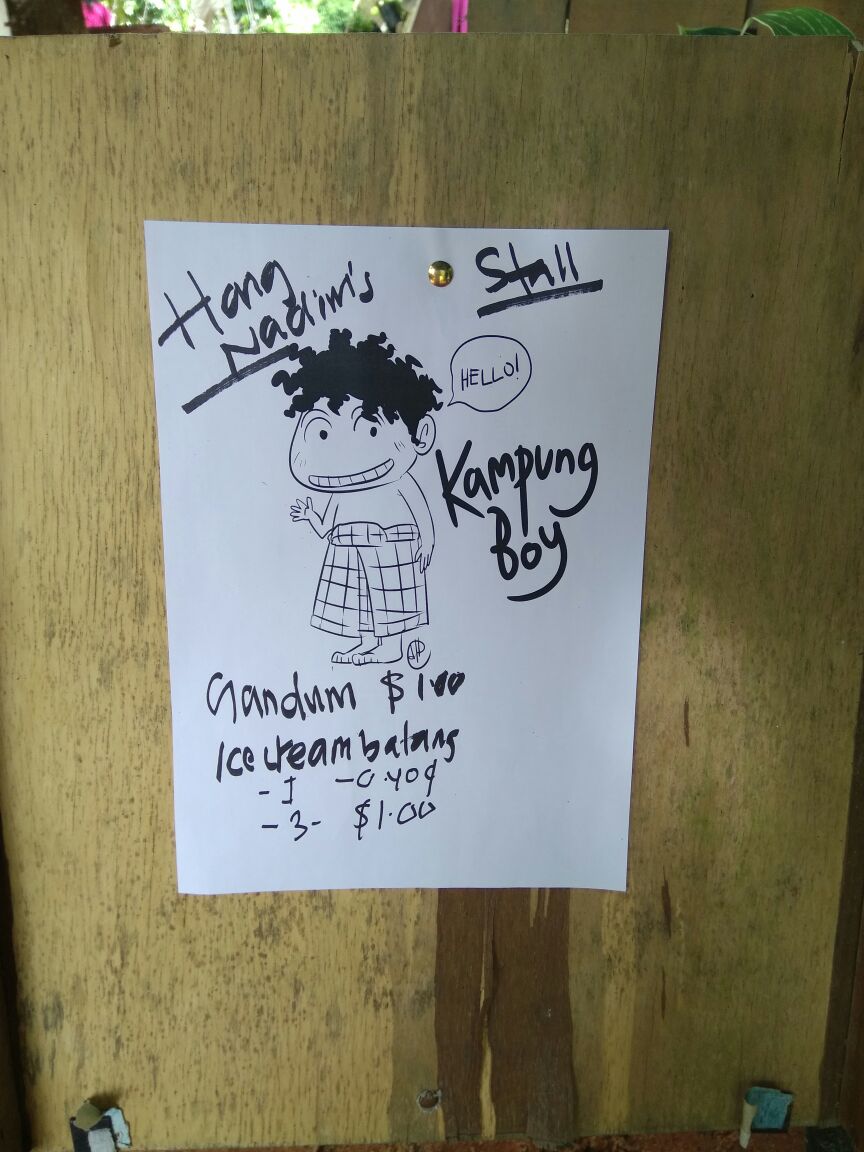 Hang
Nadim's
Stall
HELLO!
Kampung
Boy
Gandum $1.00
Ice cream batang
- 1 - 0.40¢
- 3 - $1.00